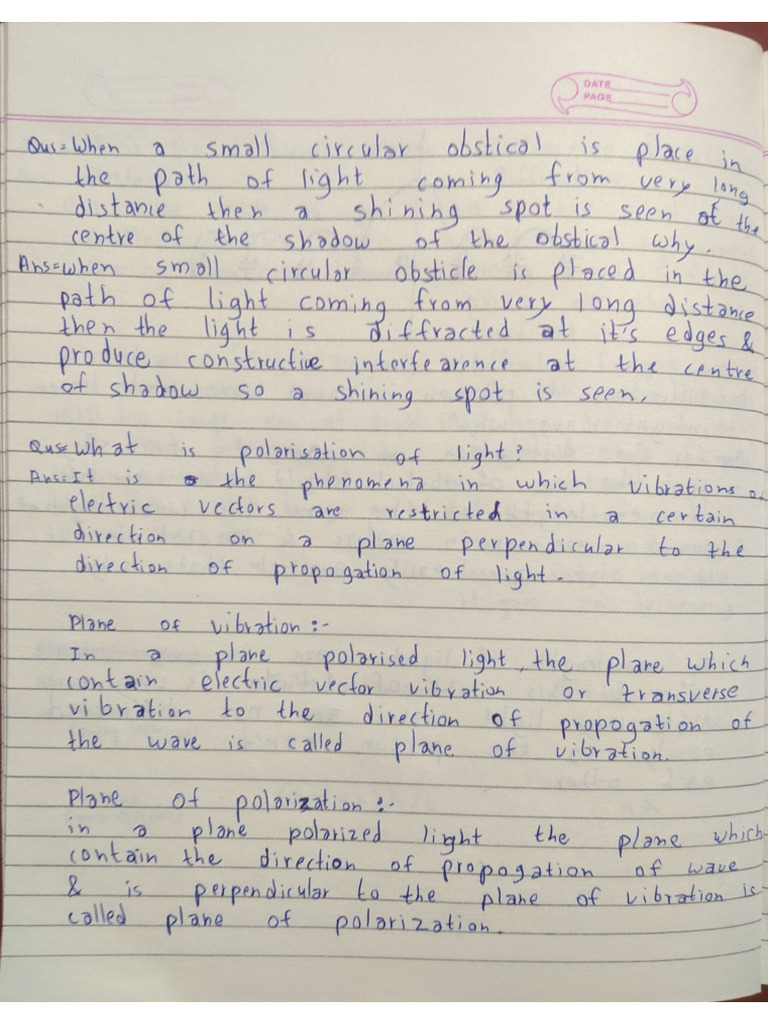 DATE
PAGE
Qus=When a small circular obstical is place in
the path of light coming from very long
distance then a shining spot is seen at the
centre of the shadow of the obstical why.
Ans=when small circular obsticle is placed in the
path of light coming from very long distance
then the light is diffracted at it's edges &
produce constructive interfearence at the centre
of shadow so a shining spot is seen.
Qus=What is polarisation of light?
Ans:It is the phenomena in which vibrations of
electric vectors are restricted in a certain
direction on a plane perpendicular to the
direction of propogation of light.
Plane of vibration:-
In a plane polarised light, the plane which
contain electric vector vibration or transverse
vibration to the direction of propogation of
the wave is called plane of vibration.
Plane of polarization:-
in a plane polarized light the plane which
contain the direction of propogation of wave
& is perpendicular to the plane of vibration is
called plane of polarization.